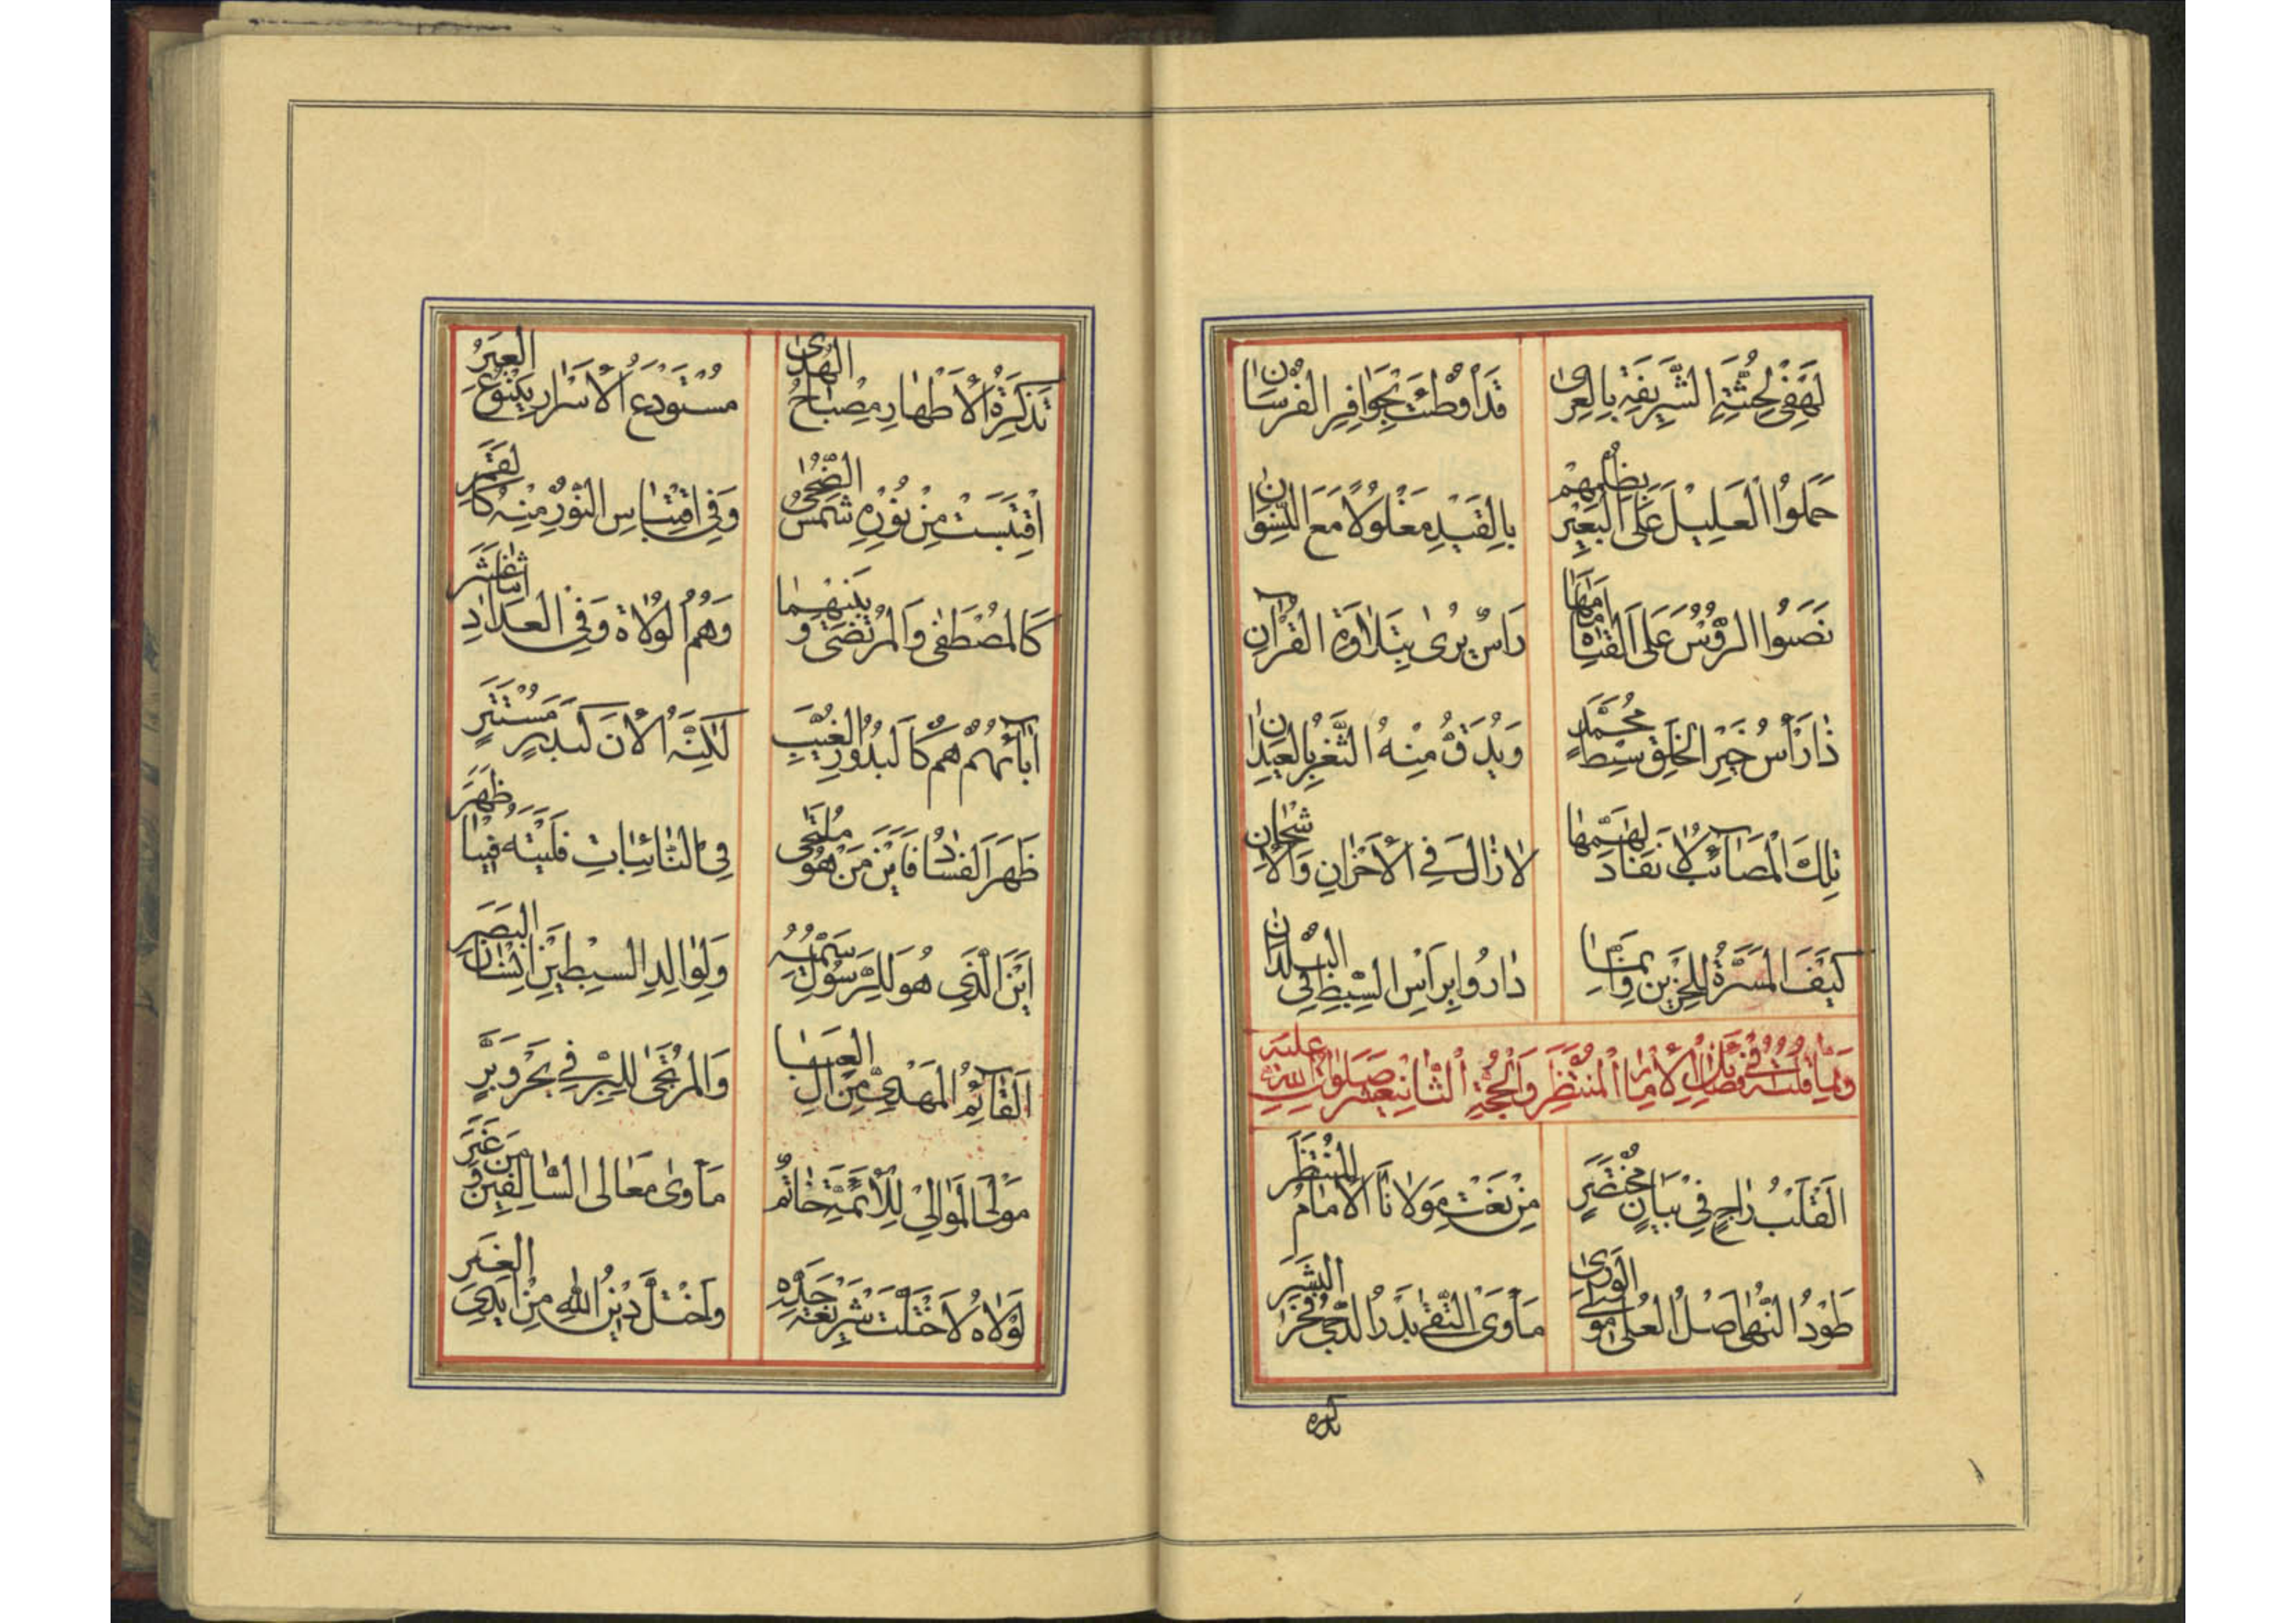 لَهْفِي لِجُثَّتِهِ الشَّرِيفَةِ بِالْعِرىٰ قَدْ أُوْطِئَتْ بِحَوَافِرِ الْفُرْسَانِ
حَمَلُوا الْعَلِيْلَ عَلَى الْبَعِيْرِ بِظُلْمِهِمْ بِالْقَيْدِ مَغْلُولًا مَعَ النِّسْوَانِ
نَصَبُوا الرُّؤُسَ عَلَى الْقَنَاةِ أَمَامَهَا رَاسٌ يُرىٰ بِتَلاوَةِ الْقُرْآنِ
ذَا رَأْسُ خَيْرِ الْخَلْقِ سِبْطِ مُحَمَّدٍ وَيُدَقُّ مِنْهُ الثَّغْرُ بِالْعِيدَانِ
تِلْكَ الْمَصَآئِبُ لاٰ نَفَادَ لِهَمِّهَا لاٰ زَالَ فِي الْأَحْزَانِ وَالْأَشْجَانِ
كَيْفَ الْمَسَرَّةُ لِلْحَزِيْنِ وَإِنَّمَا دَارُوا بِرَاْسِ السِّبْطِ فِي الْبُلْدَانِ
وَمِمَّا قُلْتُهُ فِي فَضَائِلِ الْإِمَامِ الْمُنْتَظَرِ وَالْحُجَّةِ الثَّانِيعَشَرَ صَلَوَاتُ اللهِ عَلَيْهِ
اَلْقَلْبُ رَاجٍ فِيْ بَيَانٍ مُخْتَصَرٍ مِنْ نَعْتِ مَوْلَانَا الْاِمَامِ الْمُنْتَظَرِ
طَوْدُ النُّهىٰ اَصْلُ الْعُلىٰ مَوْلَى الْوَرىٰ مَأْوَى التُّقىٰ بَدْرُ الدُّجىٰ فَخْرُ الْبَشَرِ
تذكرة
تَذْكِرَةُ الْأَطْهَارِ مِصْبَاحُ الْهُدىٰ مُسْتَوْدَعُ الْأَسْرَارِ يَنْبُوْعُ الْعِبَرِ
اقْتَبَسَتْ مِنْ نُوْرِهِ شَمْسُ الضُّحىٰ وَفِي اقْتِبَاسِ النُّوْرِ مِنْهُ كَالْقَمَرِ
كَالْمُصْطَفٰى وَالْمُرْتَضىٰ وَبَيْنَهُمَا وَهُمُ الْوُلَاةُ وَفِي الْعِدَادِ اثْنَاعَشَرَ
آبَائُهُمْ هُمْ كَالْبُدُوْرِ الْغُيَّبِ لٰكِنَّهُ الْأٰنَ كَبَدْرٍ مُسْتَتِرٍ
ظَهَرَ الْفَسَادُ فَاَيْنَ مَنْ هُوَ مُلْتَجىٰ فِي النَّائِبَاتِ فَلَيْتَهُ فِيْنَا ظَهَرَ
اَيْنَ الَّذِي هُوَ لِلرَّسُوْلِ سَمِيُّهُ وَلِوَالِدِ السِّبْطَيْنِ اِنْسَانُ الْبَصَرِ
اَلْقَآئِمُ الْمَهْدِيُّ مِنْ آلِ الْعَبَا وَالْمُرْتَجىٰ لِلْبِرِّ فِي بَحْرٍ وَبَرٍّ
مَوْلَى الْمَوَالِيْ لِلْأَئِمَّةِ خَاتَمٌ مَأْوىٰ مَعَالِى السَّالِفِيْنَ وَمَنْ غَبَرَ
لَوْلَاهُ لَاخْتَلَّتْ شَرِيْعَةُ جَدِّهِ وَاخْتَلَّ دِيْنُ اللهِ مِنْ أَيْدِي الْغِيَرِ